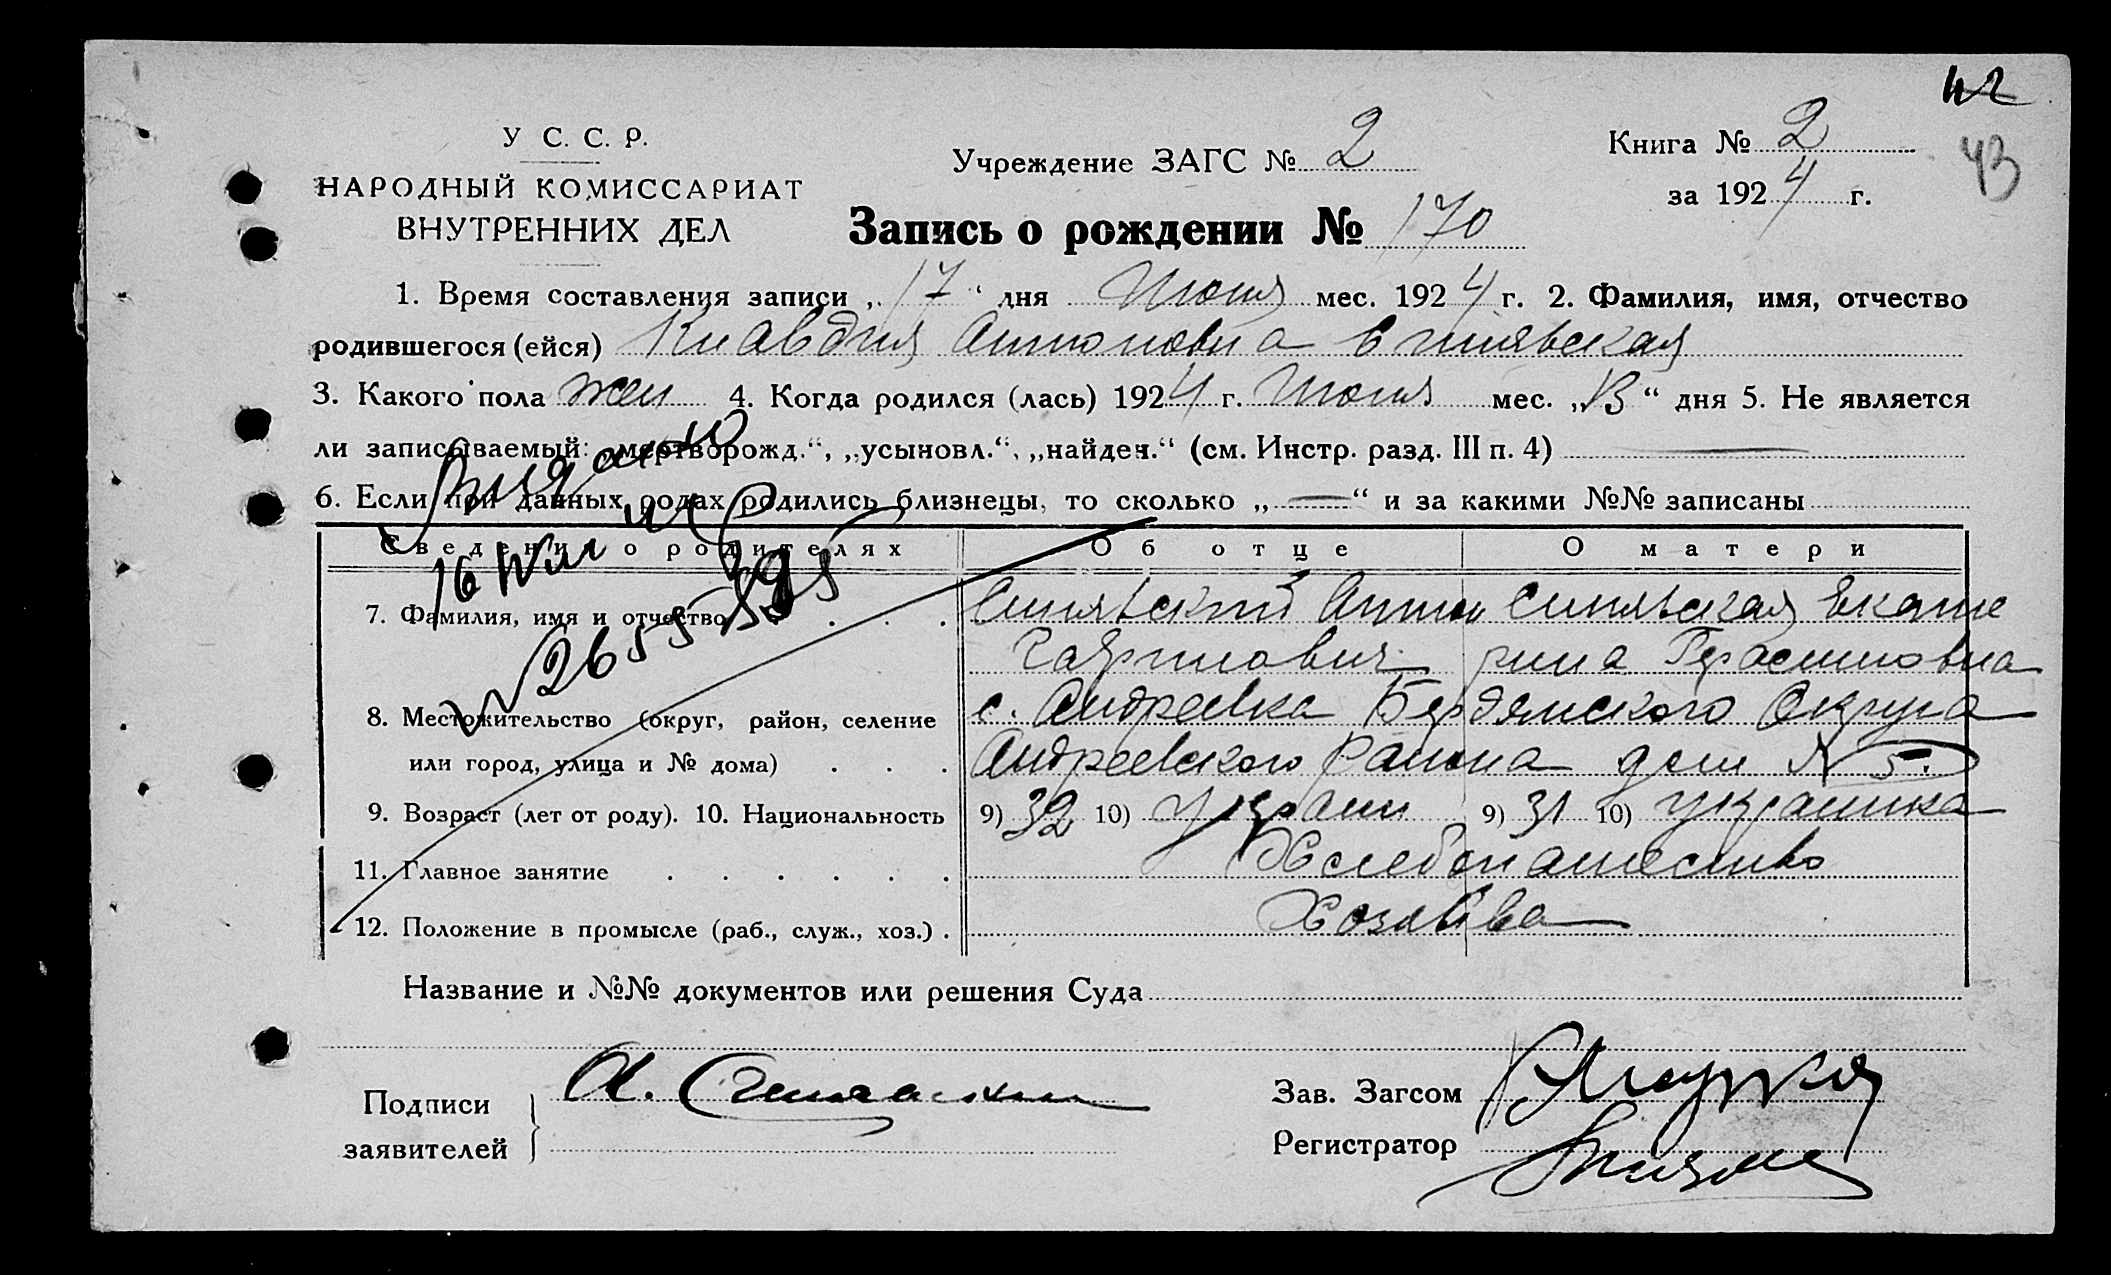 42
43
У С. С. Р.
НАРОДНЫЙ КОМИССАРИАТ
ВНУТРЕННИХ ДЕЛ
Учреждение ЗАГС № 2
Книга № 2
за 1924 г.
Запись о рождении № 170
1. Время составления записи „17“ дня Июня мес. 1924 г. 2. Фамилия, имя, отчество
родившегося (ейся) Клавдия Антоновна Синявская
3. Какого пола жен 4. Когда родился (лась) 1924 г. Июня мес. „13“ дня 5. Не является
ли записываемый: „мертворожд.“, „усыновл.“, „найден.“ (см. Инстр. разд. III п. 4)
6. Если при данных родах родились близнецы, то сколько „—“ и за какими №№ записаны
Сведения о родителях Об отце О матери
7. Фамилия, имя и отчество Синявский Антон Синявская Екате
рина Герасимовна
8. Местожительство (округ, район, селение с. Андреевка Бердянского Округа
или город, улица и № дома) Андреевского района дом № 5.
9. Возраст (лет от роду). 10. Национальность 9) 32 10) Украин 9) 31 10) украинка
11. Главное занятие Хлебопашество
12. Положение в промысле (раб., служ., хоз.) Хозяева
Название и №№ документов или решения Суда
Подписи
заявителей
А. Синявский
Зав. Загсом
Регистратор